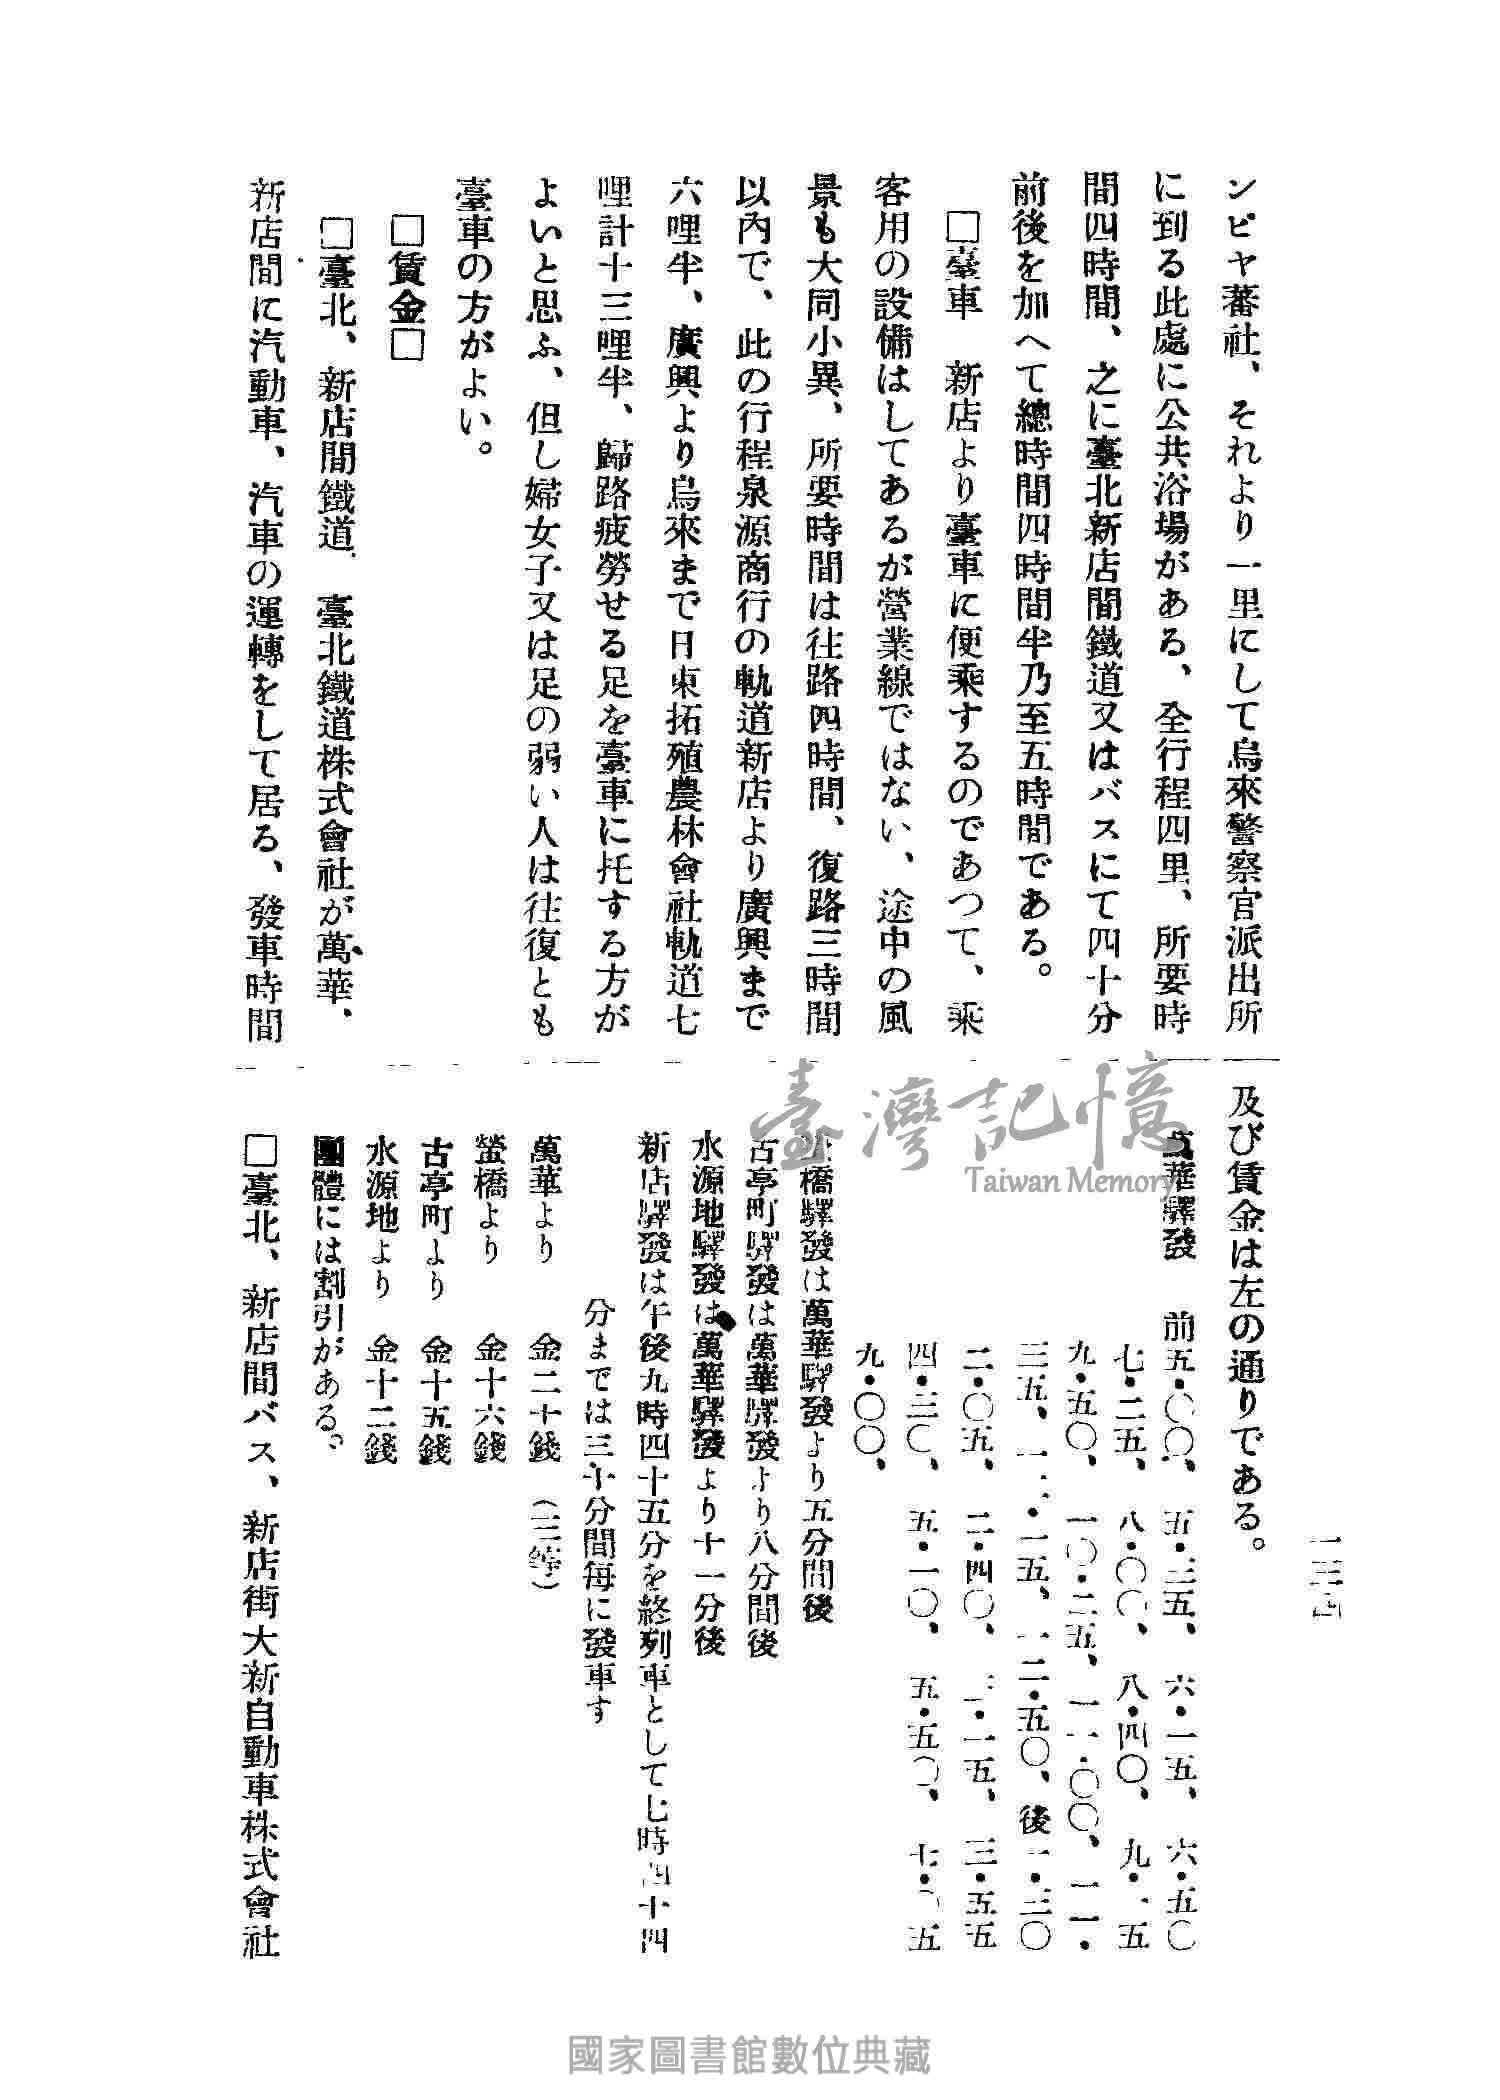 ンピヤ蕃社、それより一里にして烏來警察官派出所
に到る此處に公共浴場がある、全行程四里、所要時
間四時間、之に臺北新店間鐵道又はバスにて四十分
前後を加へて總時間四時間半乃至五時間である。
□臺車　新店より臺車に便乘するのであつて、乘
客用の設備はしてあるが營業線ではない、途中の風
景も大同小異、所要時間は往路四時間、復路三時間
以內で、此の行程泉源商行の軌道新店より廣興まで
六哩半、廣興より烏來まで日東拓殖農林會社軌道七
哩計十三哩半、歸路疲勞せる足を臺車に托する方が
よいと思ふ、但し婦女子又は足の弱い人は往復とも
臺車の方がよい。
□賃金□
□臺北、新店間鐵道　臺北鐵道株式會社が萬華、
新店間に汽動車、汽車の運轉をして居る、發車時間
一三四
及び賃金は左の通りである。
萬華驛發　前五・〇〇、五・三五、六・一五、六・五〇
七・二五、八・〇〇、八・四〇、九・一五
九・五〇、一〇・二五、一一・〇〇、一一・
三五、一二・一五、一二・五〇、後一・三〇
二・〇五、二・四〇、三・一五、三・五五
四・三〇、五・一〇、五・五〇、七・〇五
九・〇〇、
橋驛發は萬華驛發より五分間後
古亭町驛發は萬華驛發より八分間後
水源地驛發は萬華驛發より十一分後
新店驛發は午後九時四十五分を終列車として七時四十四
分までは三十分間每に發車す
萬華より　金二十錢（三等）
螢橋より　金十六錢
古亭町より　金十五錢
水源地より　金十二錢
團體には割引がある。
□臺北、新店間バス、新店街大新自動車株式會社
臺灣記憶
Taiwan Memory
國家圖書館數位典藏